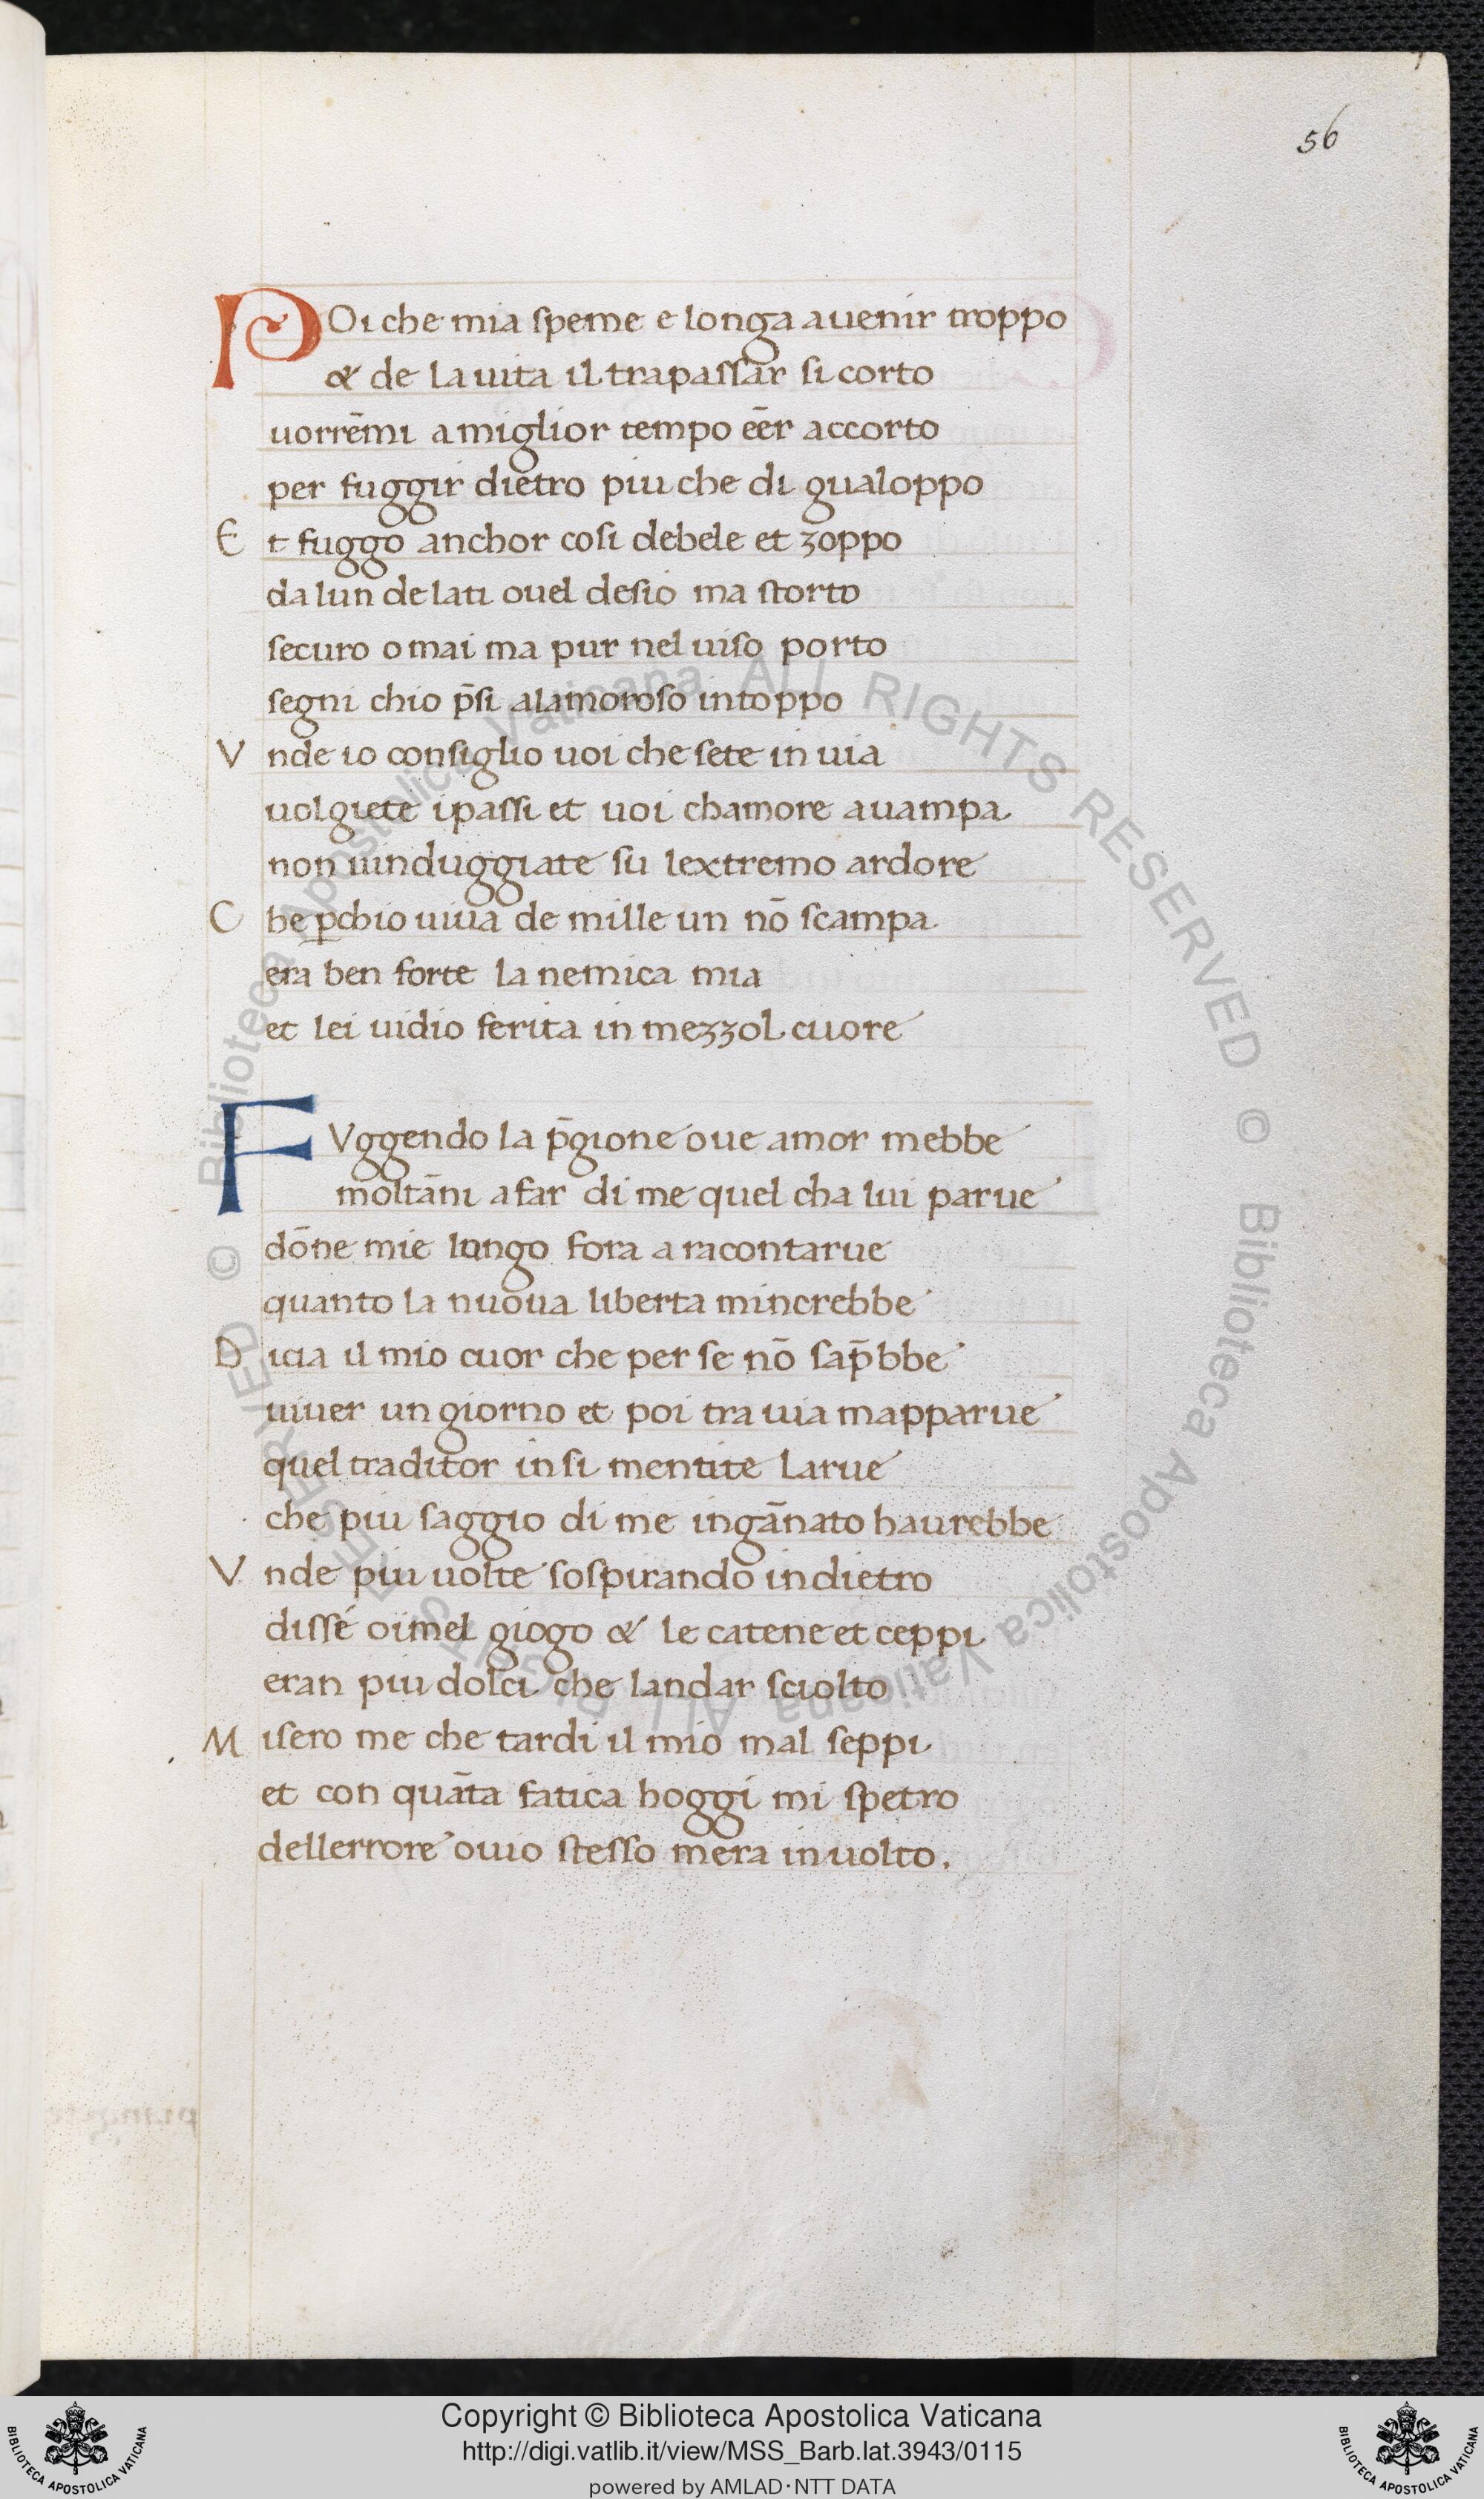 56
POi che mia speme e longa auenir troppo
& de la uita il trapassar si corto
uorrēmi a miglior tempo eēr accorto
per fuggir dietro piu che di gualoppo
Et fuggo anchor cosi debele et zoppo
da lun de lati ouel desio ma storto
securo omai ma pur nel uiso porto
segni chio p̄si alamoroso intoppo
Vnde io consiglio uoi che sete in uia
uolgiete i passi et uoi chamore auampa
non uinduggiate su lextremo ardore
Che ꝑchio uiua de mille un nō scampa
era ben forte la nemica mia
et lei uidio ferita in mezzol cuore
FVggendo la p̄gione oue amor mebbe
moltāni a far di me quel cha lui parue
dōne mie lungo fora a racontarue
quanto la nuoua liberta mincrebbe
Dicia il mio cuor che per se nō sap̄bbe
uiuer un giorno et poi tra uia mapparue
quel traditor in si mentite larue
che piu saggio di me ingānato haurebbe
Vnde piu uolte sospirando indietro
dissé oimel giogo & le catene et ceppi
eran piu dolci che landar sciolto
Misero me che tardi il mio mal seppi
et con quāta fatica hoggi mi spetro
dellerrore ouio stesso mera inuolto.
© Biblioteca Apostolica Vaticana ALL RIGHTS RESERVED © Biblioteca Apostolica Vaticana ALL RIGHTS RESERVED
Copyright © Biblioteca Apostolica Vaticana
http://digi.vatlib.it/view/MSS_Barb.lat.3943/0115
powered by AMLAD·NTT DATA
BIBLIOTECA APOSTOLICA VATICANA
BIBLIOTECA APOSTOLICA VATICANA